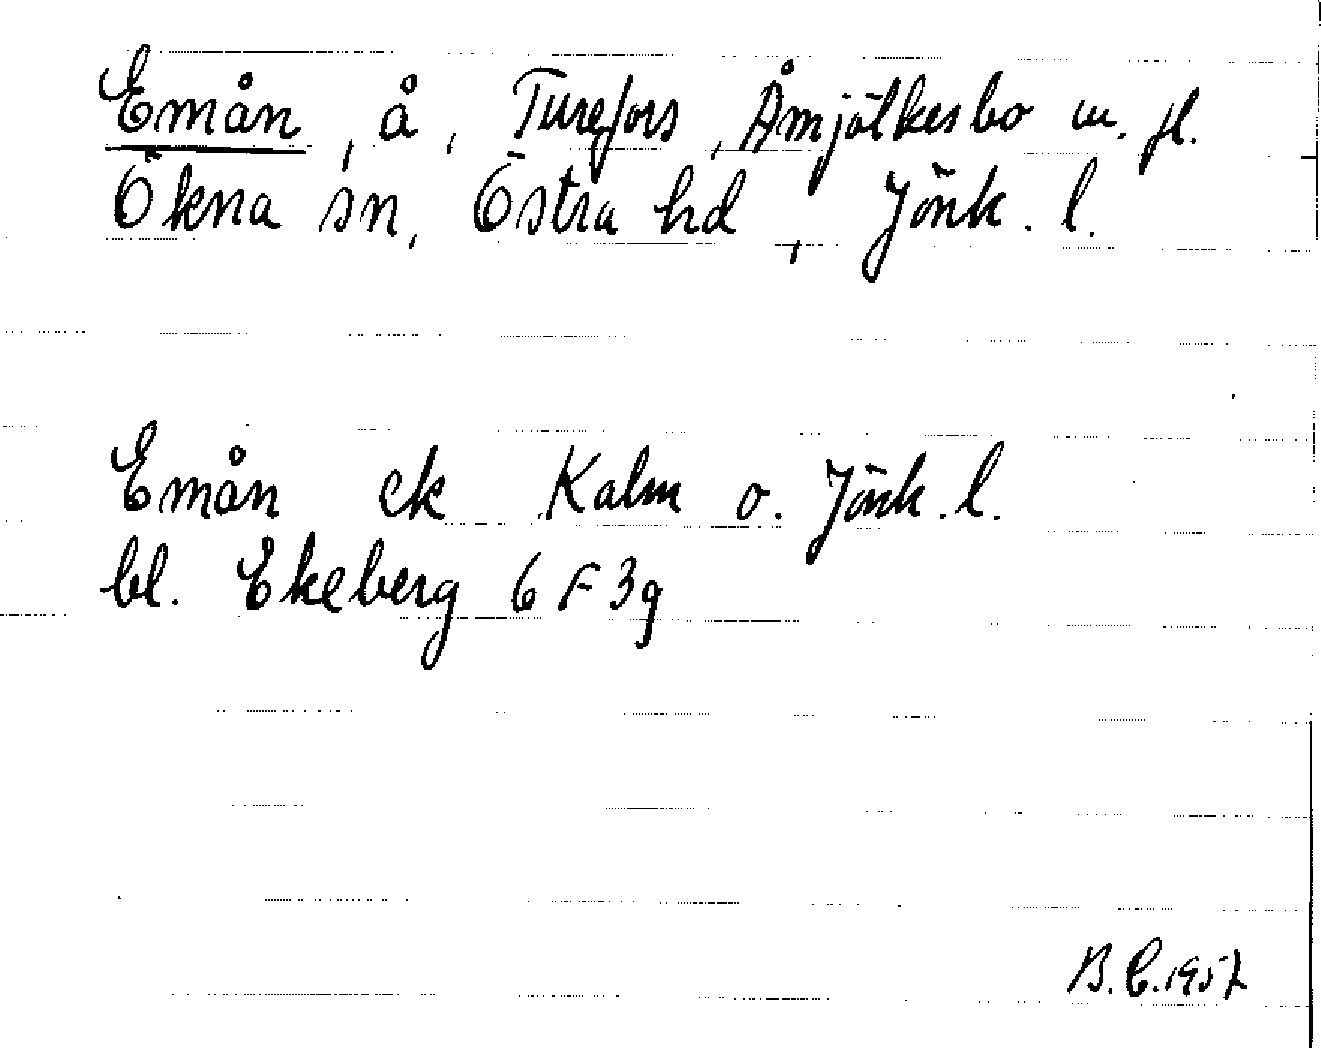 Emån, å, Turefors, Åmjölkesbo m. fl.
Ökna sn, Östra hd, Jönk. l.
Emån ek Kalm o. Jönk. l.
bl. Ekeberg 6 F 3g
B. C. 1957